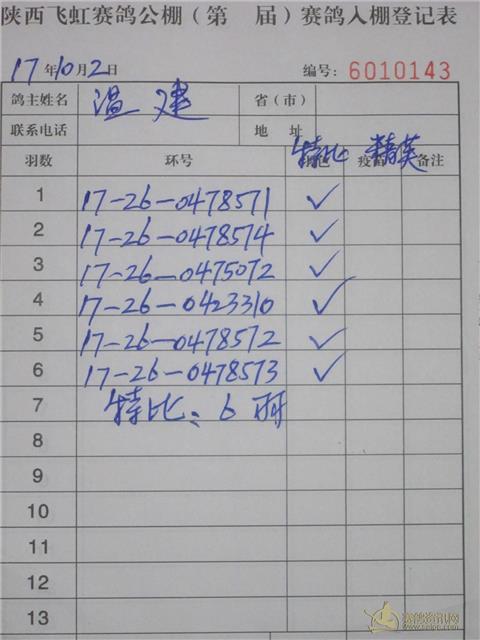 陕西飞虹赛鸽公棚（第 届）赛鸽入棚登记表
17年10月2日 编号：6010143
鸽主姓名 温建 省（市）
联系电话 地 址
羽数 环号 特比 疫苗 精英 备注
1 17-26-0478571 ✓
2 17-26-0478574 ✓
3 17-26-0475072 ✓
4 17-26-0423310 ✓
5 17-26-0478572 ✓
6 17-26-0478573 ✓
7 特比：6羽
8
9
10
11
12
13